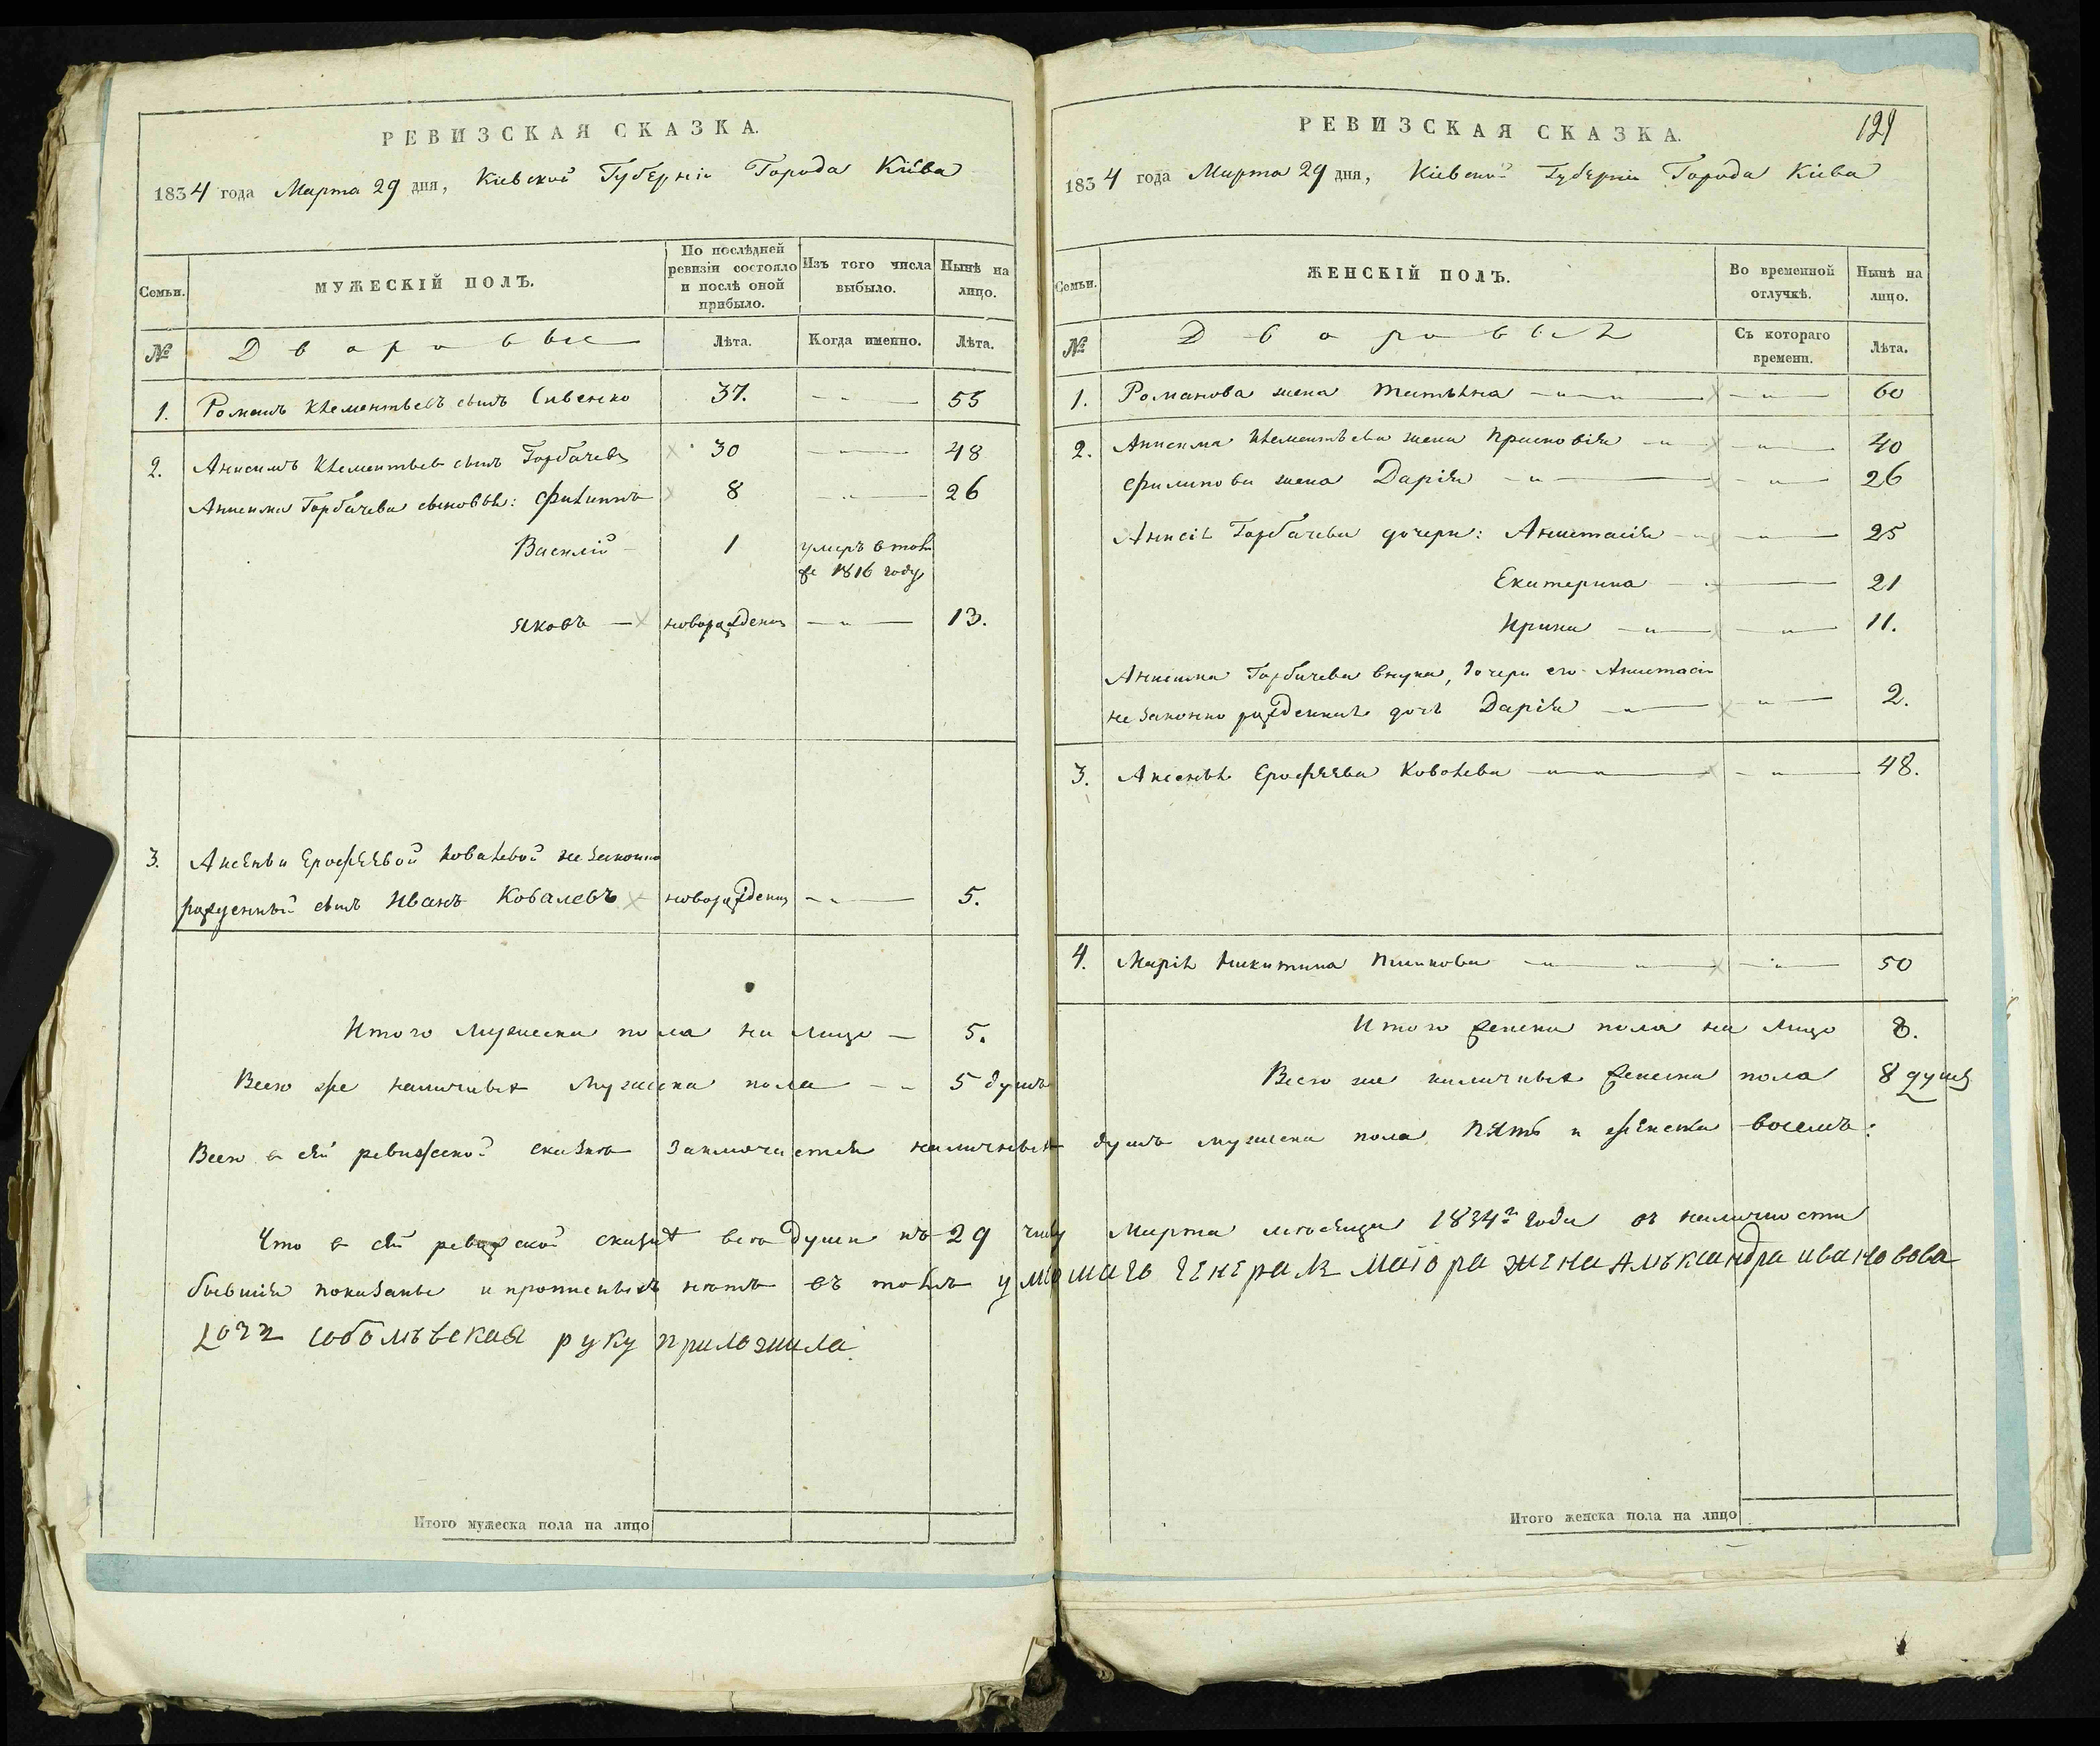 РЕВИЗСКАЯ СКАЗКА.
1834 года Марта 29 дня, Кіевской Губерніи Города Кіева
Семьи.
МУЖЕСКІЙ ПОЛЪ.
По послѣдней ревизіи состояло и послѣ оной прибыло.
Изъ того числа выбыло.
Нынѣ на лицо.
№
Дворовые
Лѣта.
Когда именно.
Лѣта.
1. Романъ Клементьевъ сынъ Сивенко 37. 55
2. Анисимъ Клементьевъ сынъ Горбачевъ 30 48
Анисима Горбачева сыновья: Филиппъ 8 26
Василій 1 умеръ в томъ
же 1816 году
Яковъ новорожденъ 13.
3. Аксеньи Ерофѣевой Ковалевой незаконно
рожденный сынъ Иванъ Ковалевъ новорожденъ 5.
Итого мужеска пола на лицо 5.
Всего же наличныхъ мужеска пола 5 душъ
РЕВИЗСКАЯ СКАЗКА.
129
1834 года Марта 29 дня, Кіевской Губерніи Города Кіева
Семьи.
ЖЕНСКІЙ ПОЛЪ.
Во временной отлучкѣ.
Нынѣ на лицо.
№
Дворовыя
Съ котораго времени.
Лѣта.
1. Романова жена Татьяна 60
2. Анисима Клементьева жена Прасковія 40
Филипова жена Дарія 26
Горбачева дочери: Анастасія 25
Екатерина 21
Ирина 11.
Анисима Горбачева внука, дочери его Анастасіи
незаконно рожденная дочь Дарія 2.
3. Аксенья Ерофѣева Ковалева 48.
4. Марія Никитина 50
Итого женска пола на лицо 8.
Всего же наличныхъ женска пола 8 душъ
Всего в сей ревизской сказкѣ заключается наличныхъ душъ мужеска пола пять и женска восемь:
Что в сей ревизской сказкѣ всѣ души къ 29 числу Марта мѣсяца 1834го года въ наличности
бывшія показаны и прописныхъ нѣтъ въ томъ генералъ маіора жена Александра ивановова
дочь соболѣвская руку приложила
Итого мужеска пола на лицо
Итого женска пола на лицо